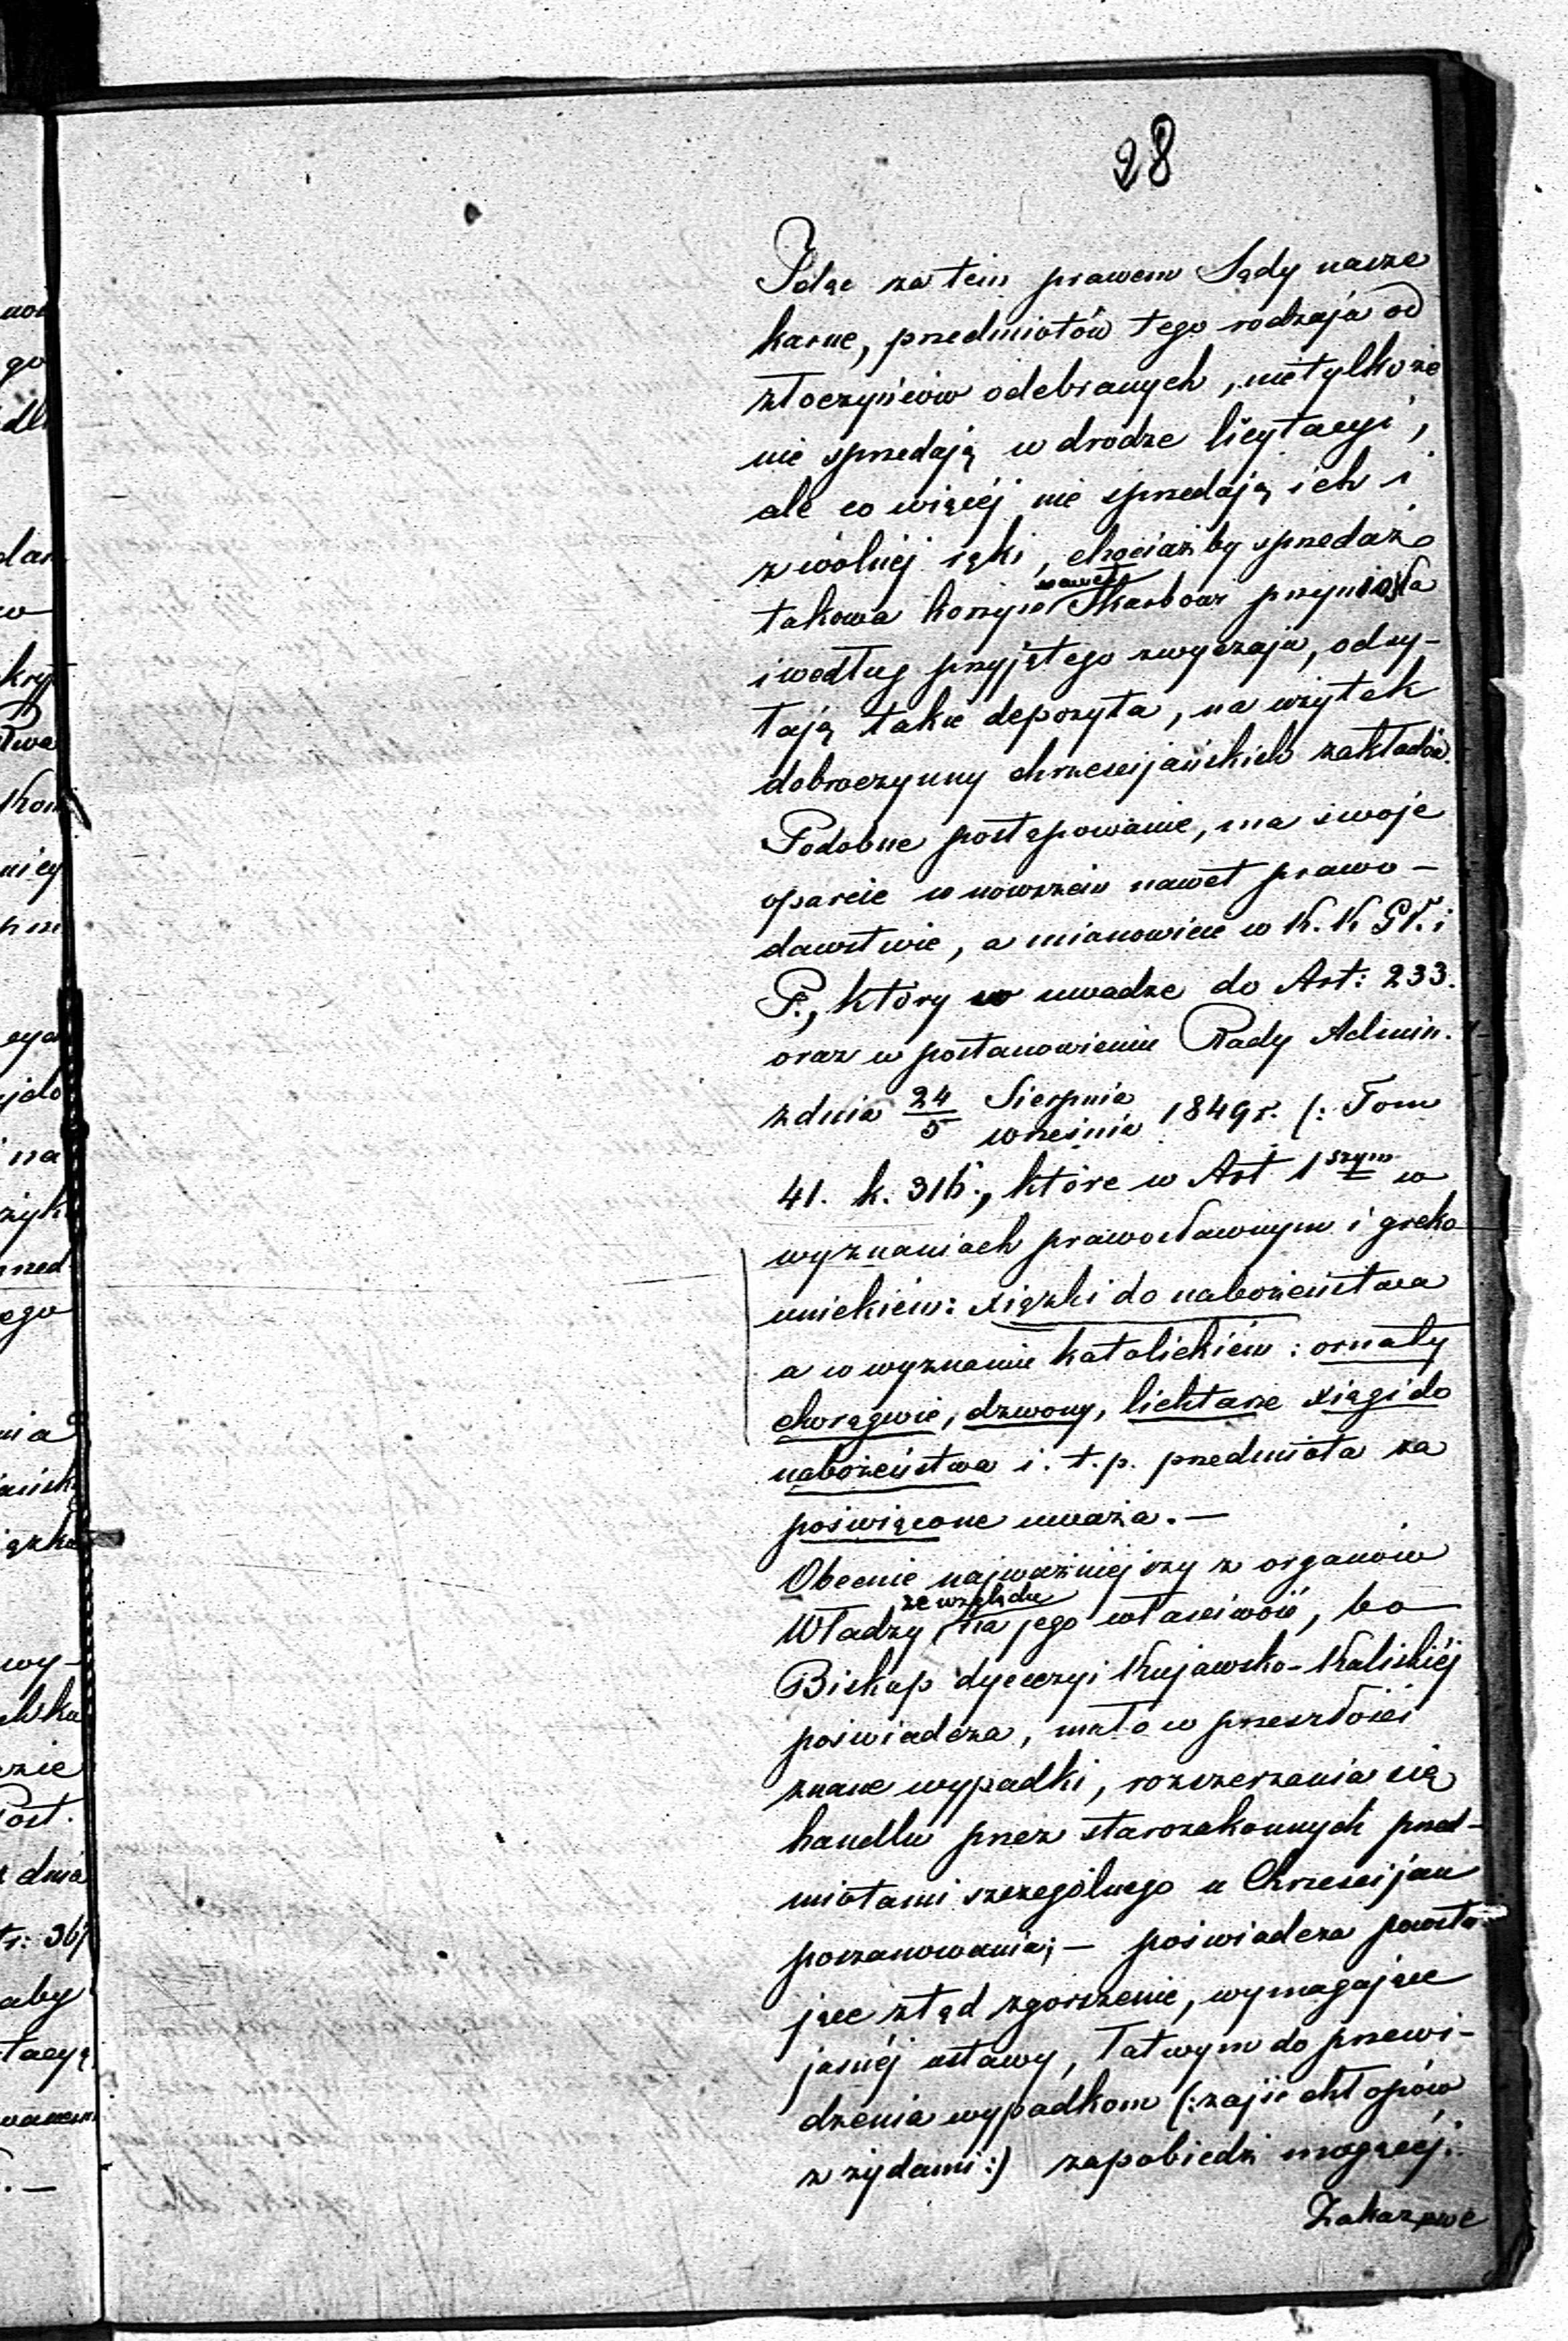 28
Idąc za tem prawem Sądy nasze
karne, przedmiotów tego rodzaja od
złoczyńców odebranych, nietylko że
nie sprzedają w drodze licytacyi,
ale co więcéj nie sprzedają ich i
z wólnéj ręki, chociażby sprzedaż
takowa korzyść nawet Skarbowi przyniosła
i według przyjętego zwyczaju, odsy-
łają takie depozyta, na użytek
dobroczynny chrześcijańskich zakładów.
Podobne postępowanie, ma swoje
oparcie w nowszém nawet prawo-
dawstwie, a mianowicie w K. K. G. i
P., który w uwadze do Art: 233.
oraz w postanowieniu Rady Admin.
z dnia 24/5 Sierpnia/września 1849 r. (: Tom
41. k. 316., które w Art 1szym w
wyznaniach prawosławnym i greko
unickiém: xiążki do nabożeństwa
a w wyznaniu katolickiém: ornaty
chorągwie, dzwony, lichtarze xięgi do
nabożeństwa i. t. p. przedmiota za
poświęcone uważa. —
Obecnie najważniejszy z organów
Władzy ze względu na jego właściwość, bo
Biskup dyecezyi Kujawsko-Kaliskiéj
poświadcza, mało w przeszłości
znane wypadki, rozszerzania się
handlu przez starozakonnych przed-
miotami szczególnego u Chrześcijan
poszanowania; — poświadcza powsta-
jące ztąd zgorszenie, wymagające
jasnéj ustawy, łatwym do przewi-
dzenia wypadkom (:zajść chłopów
z żydami:) zapobiedz mogącéj.
Zakazowe